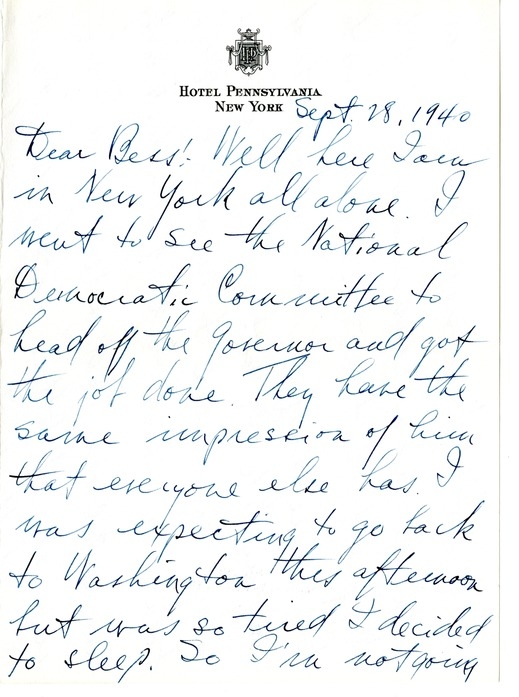 HOTEL PENNSYLVANIA
NEW YORK
Sept. 28, 1940
Dear Bess:- Well here I am
in New York all alone. I
went to see the National
Democratic Committee to
head off the Governor and got
the job done. They have the
same impression of him
that everyone else has. I
was expecting to go back
to Washington this afternoon
but was so tired I decided
to sleep. So I'm not going